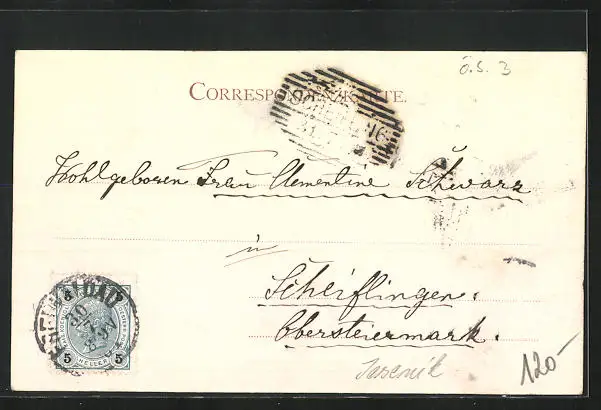 Ö.S. 3
CORRESPONDENZKARTE.
Wohlgeboren Frau Clementine Schwarz
in
Scheiflingen.
Obersteiermark.
5 HELLER 5
Jasenik
120-